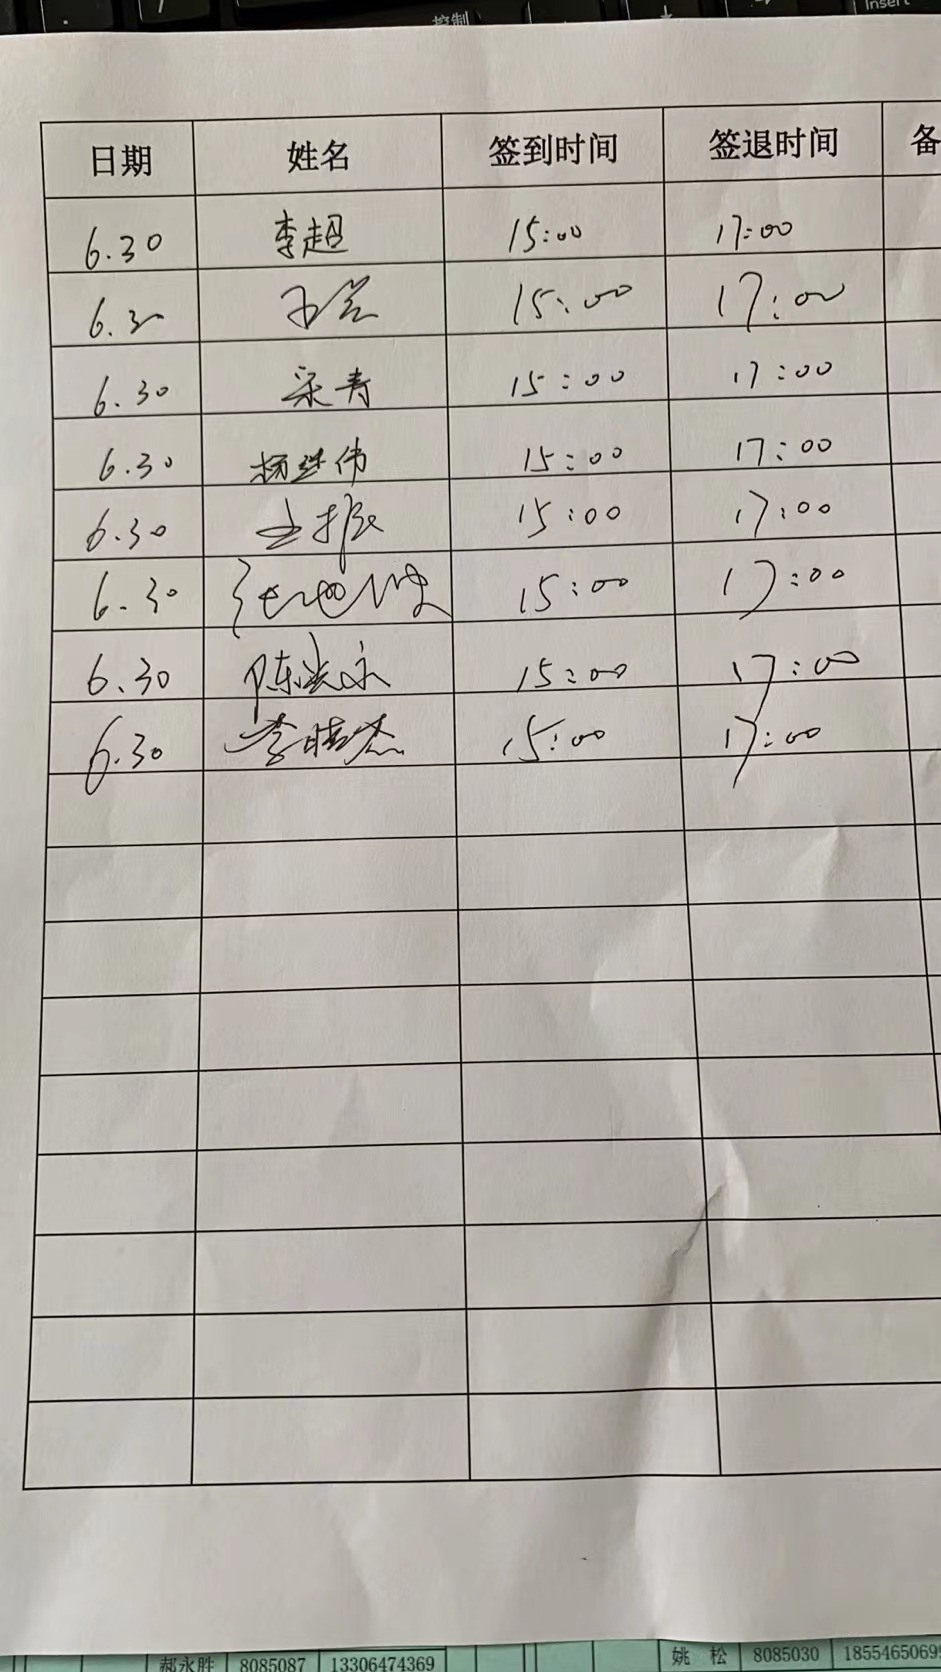 控制
Insert
日期 姓名 签到时间 签退时间 备
6.30 李超 15:00 17:00
6.30 15:00 17:00
6.30 梁寿 15:00 17:00
6.30 杨继伟 15:00 17:00
6.30 王振 15:00 17:00
6.30 15:00 17:00
6.30 陈洪永 15:00 17:00
6.30 李晴杰 15:00 17:00
郝永胜 8085087 13306474369
姚 松 8085030 1855465069